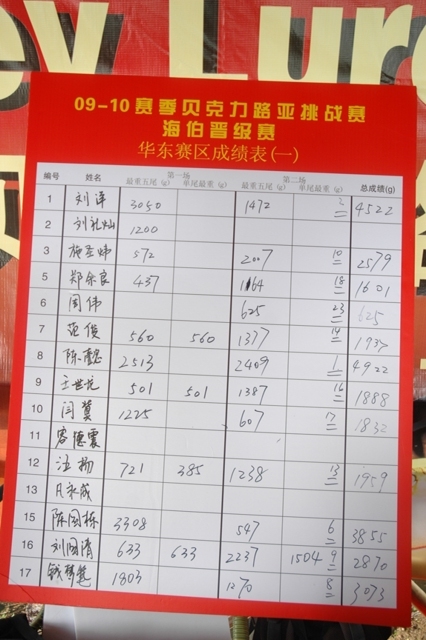 ey Lure
09-10赛季贝克力路亚挑战赛
海伯晋级赛
华东赛区成绩表(一)
第一场 第二场
编号 姓名 最重五尾 (g) 单尾最重 (g) 最重五尾 (g) 单尾最重 (g) 总成绩(g)
1 刘洋 3050 1472 2 4522
2 刘礼灿 1200
3 施圣炜 572 2007 10 2579
5 郑余良 437 1164 18 1601
6 周伟 625 23 625
7 范俊 560 560 1377 14 1937
8 陈 2513 2409 1 4922
9 王世龙 501 501 1387 16 1888
10 闫冀 1225 607 17 1832
11 德震
12 汪扬 721 385 1238 13 1959
13
15 陈国栋 3308 547 6 3855
16 刘国清 633 633 2237 1504 9 2870
17 钱 1803 1270 8 3073